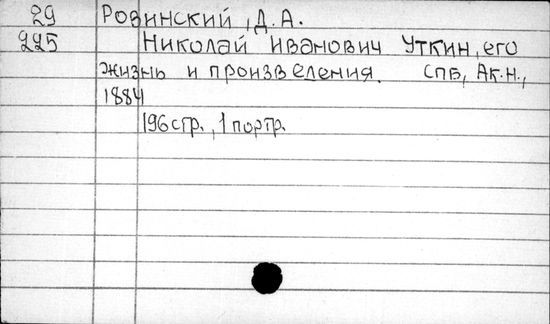 29 Ровинский, Д.А.
225 Николай Иванович Уткин, его
жизнь и произведения. СПБ, Ак.Н.,
1884
196стр., 1 портр.